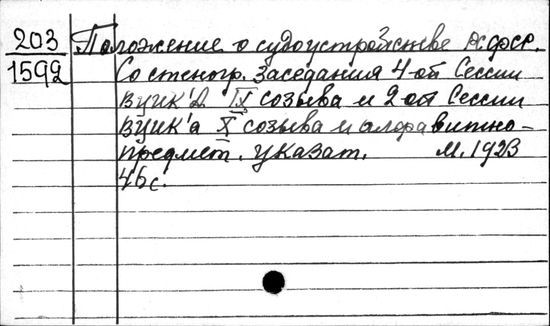 203 Положение о судоустройстве РСФСР.
1592 Со стеногр. заседания 4-ой Сессии
ВЦИК'а IX созыва и 2-ой Сессии
ВЦИК'а X созыва и алфавитно-
предмет. указат. М. 1923
46 с.